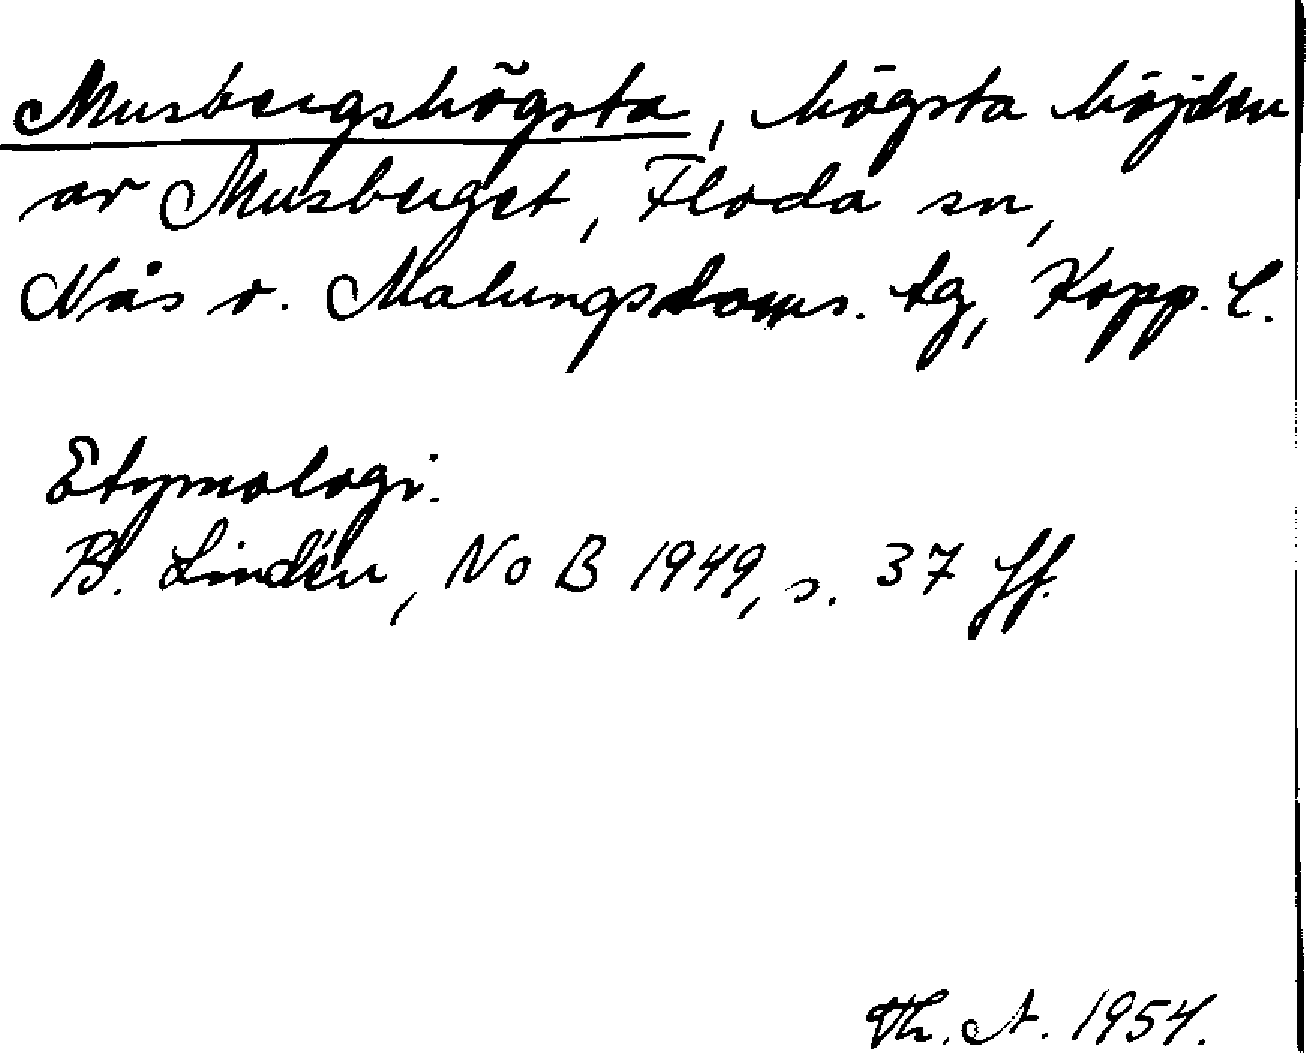 Musbergshögsta, högsta höjden
av Musberget, Floda sn,
Nås o. Malungs doms. tg, Kopp. l.
Etymologi.
B. Lindén, NoB 1949, s. 37 ff.
Th. A. 1954.